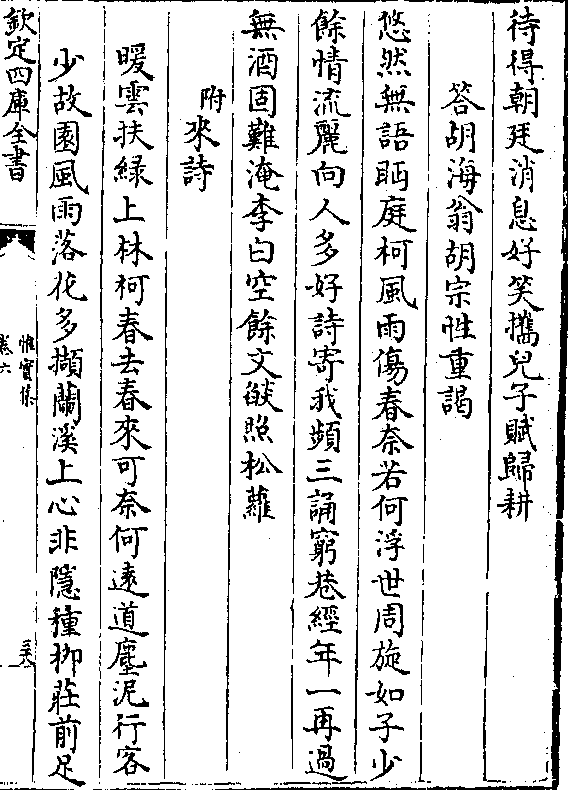 待得朝廷消息好笑攜兒子賦歸耕
答胡海翁胡宗性重謁
悠然無語眄庭柯風雨傷春奈若何浮世周旋如子少
餘情流麗向人多好詩寄我頻三誦窮巷經年一再過
無酒固難淹李白空餘文燄照松蘿
附來詩
暖雲扶緑上林柯春去春來可奈何遠道塵泥行客
少故園風雨落花多擷蘭溪上心非隱種柳莊前足
欽定四庫全書
惟實集
卷六